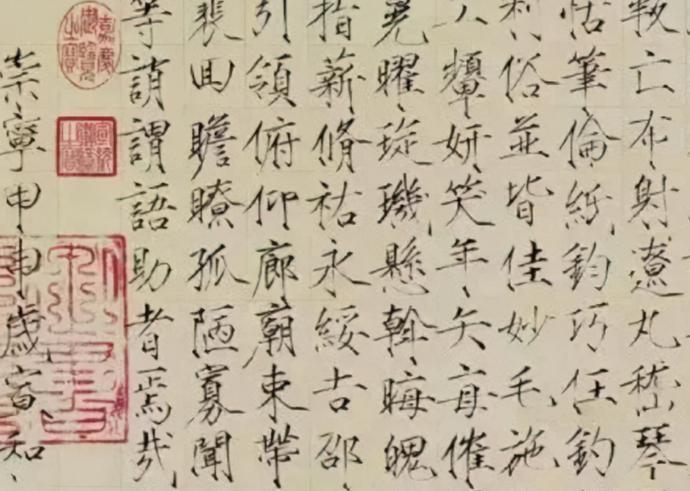 叛亡布射遼丸嵇琴
恬筆倫紙鈞巧任釣
利俗並皆佳妙毛施
工顰妍笑年矢每催
晃曜琁璣懸斡晦魄
指薪脩祐永綏吉邵
引領俯仰廊廟束帶
裴回瞻瞭孤陋寡聞
等誚謂語助者焉哉
嘉慶御覽之寶
崇寧甲申歲宣和